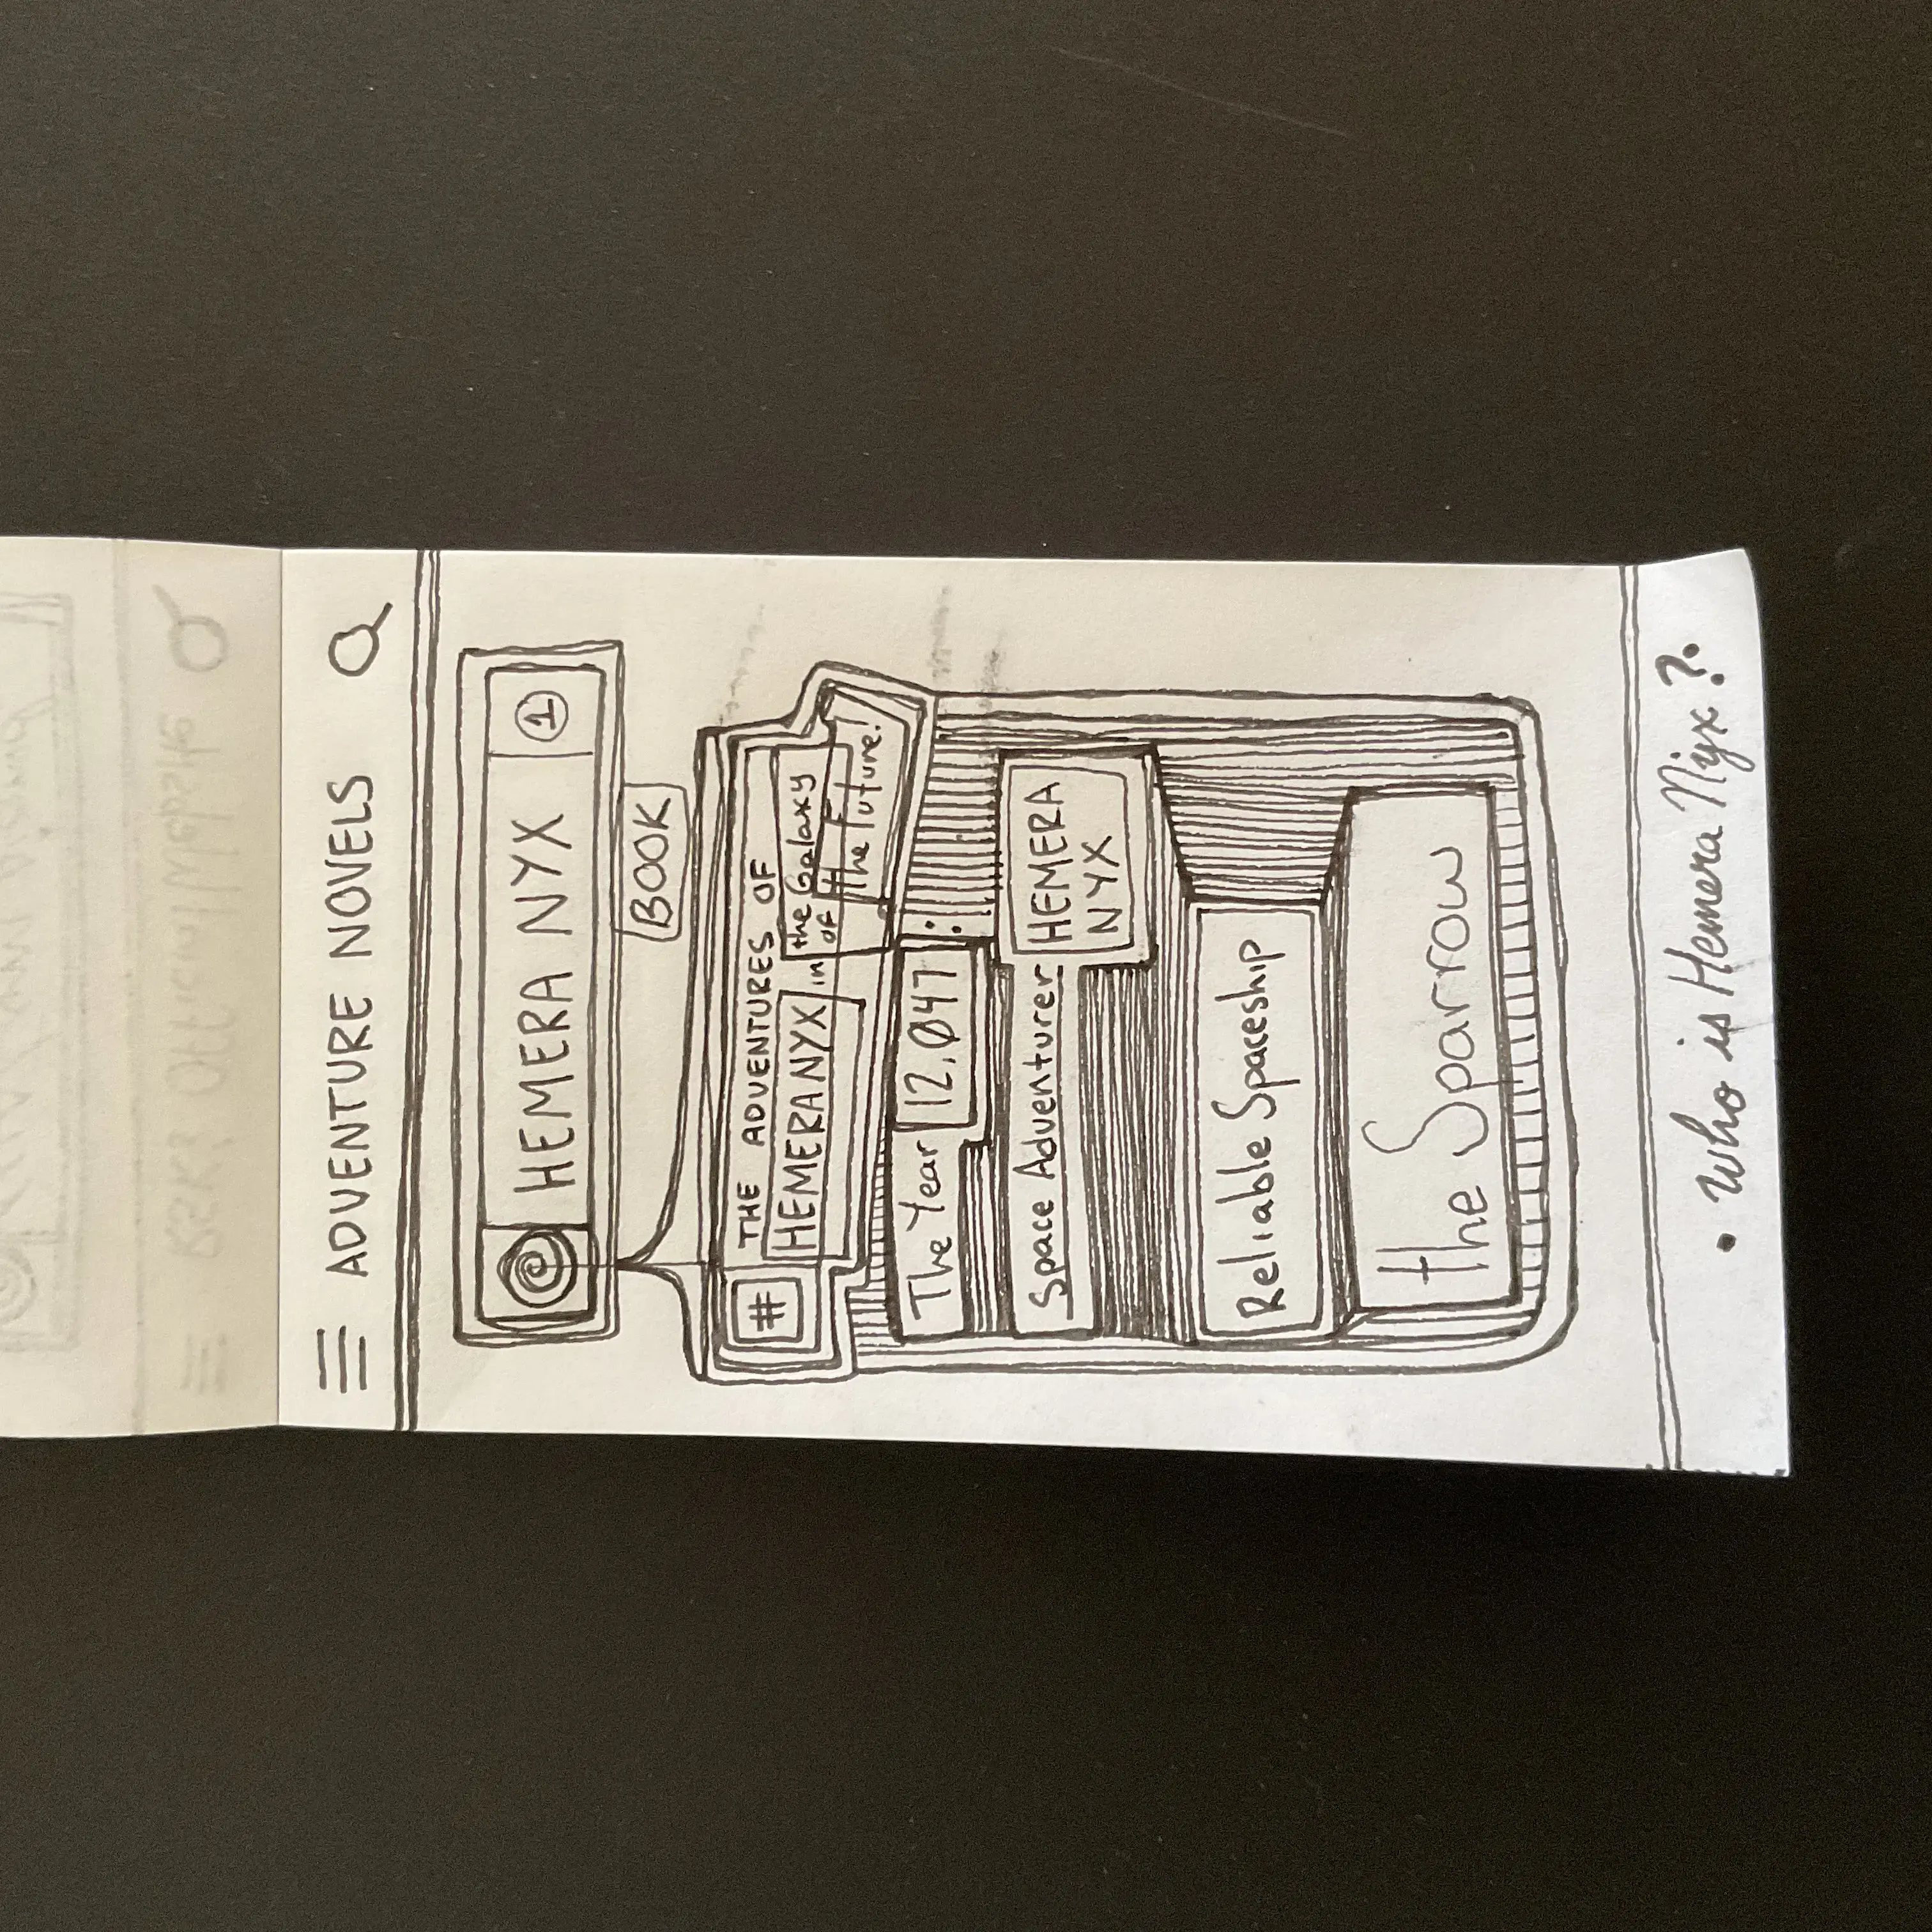 ADVENTURE NOVELS
HEMERA NYX 1
BOOK
# THE ADVENTURES OF
HEMERA NYX in the Galaxy
of the Future!
The Year 12,047:
Space Adventurer HEMERA
NYX
Reliable Spaceship
the Sparrow
• Who is Hemera Nyx?